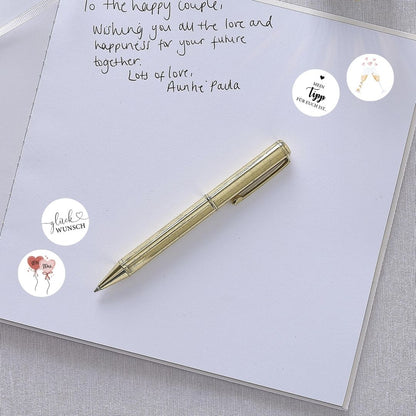 To the happy couple,
Wishing you all the love and
happiness for your future
together.
Lots of love,
Auntie Paula
MEIN
Tipp
FÜR EUCH IST,
glück
WUNSCH